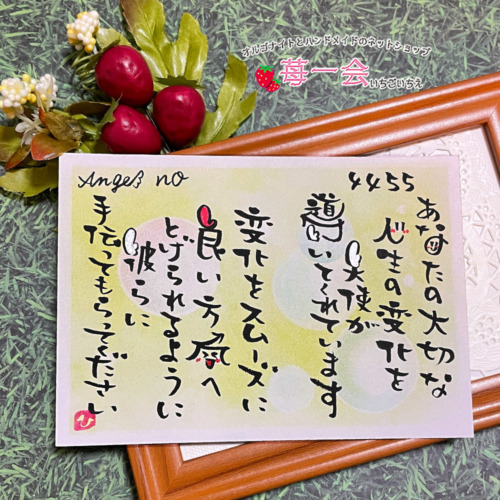 オルゴナイトとハンドメイドのネットショップ
苺一会
いちごいちえ
Angel no
4455
あなたの大切な
人生の変化を
天使が
導いてくれています
変化をスムーズに
良い方向へ
とげられるように
彼らに
手伝ってもらってください